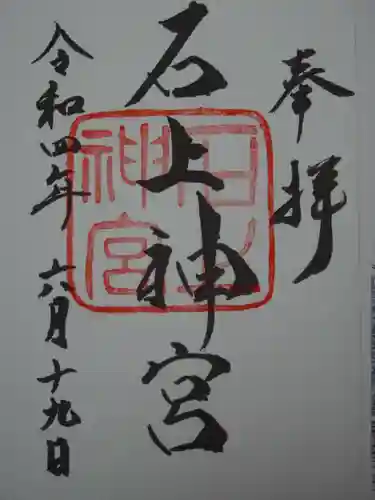 奉拝
石上神宮
石上神宮
令和四年六月十九日